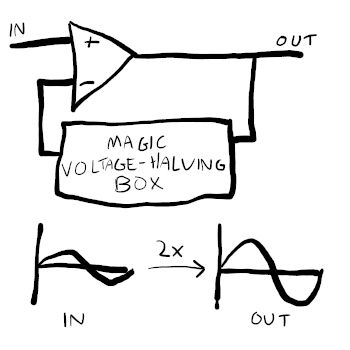 IN
+
OUT
-
MAGIC
VOLTAGE-HALVING
BOX
2x
IN
OUT